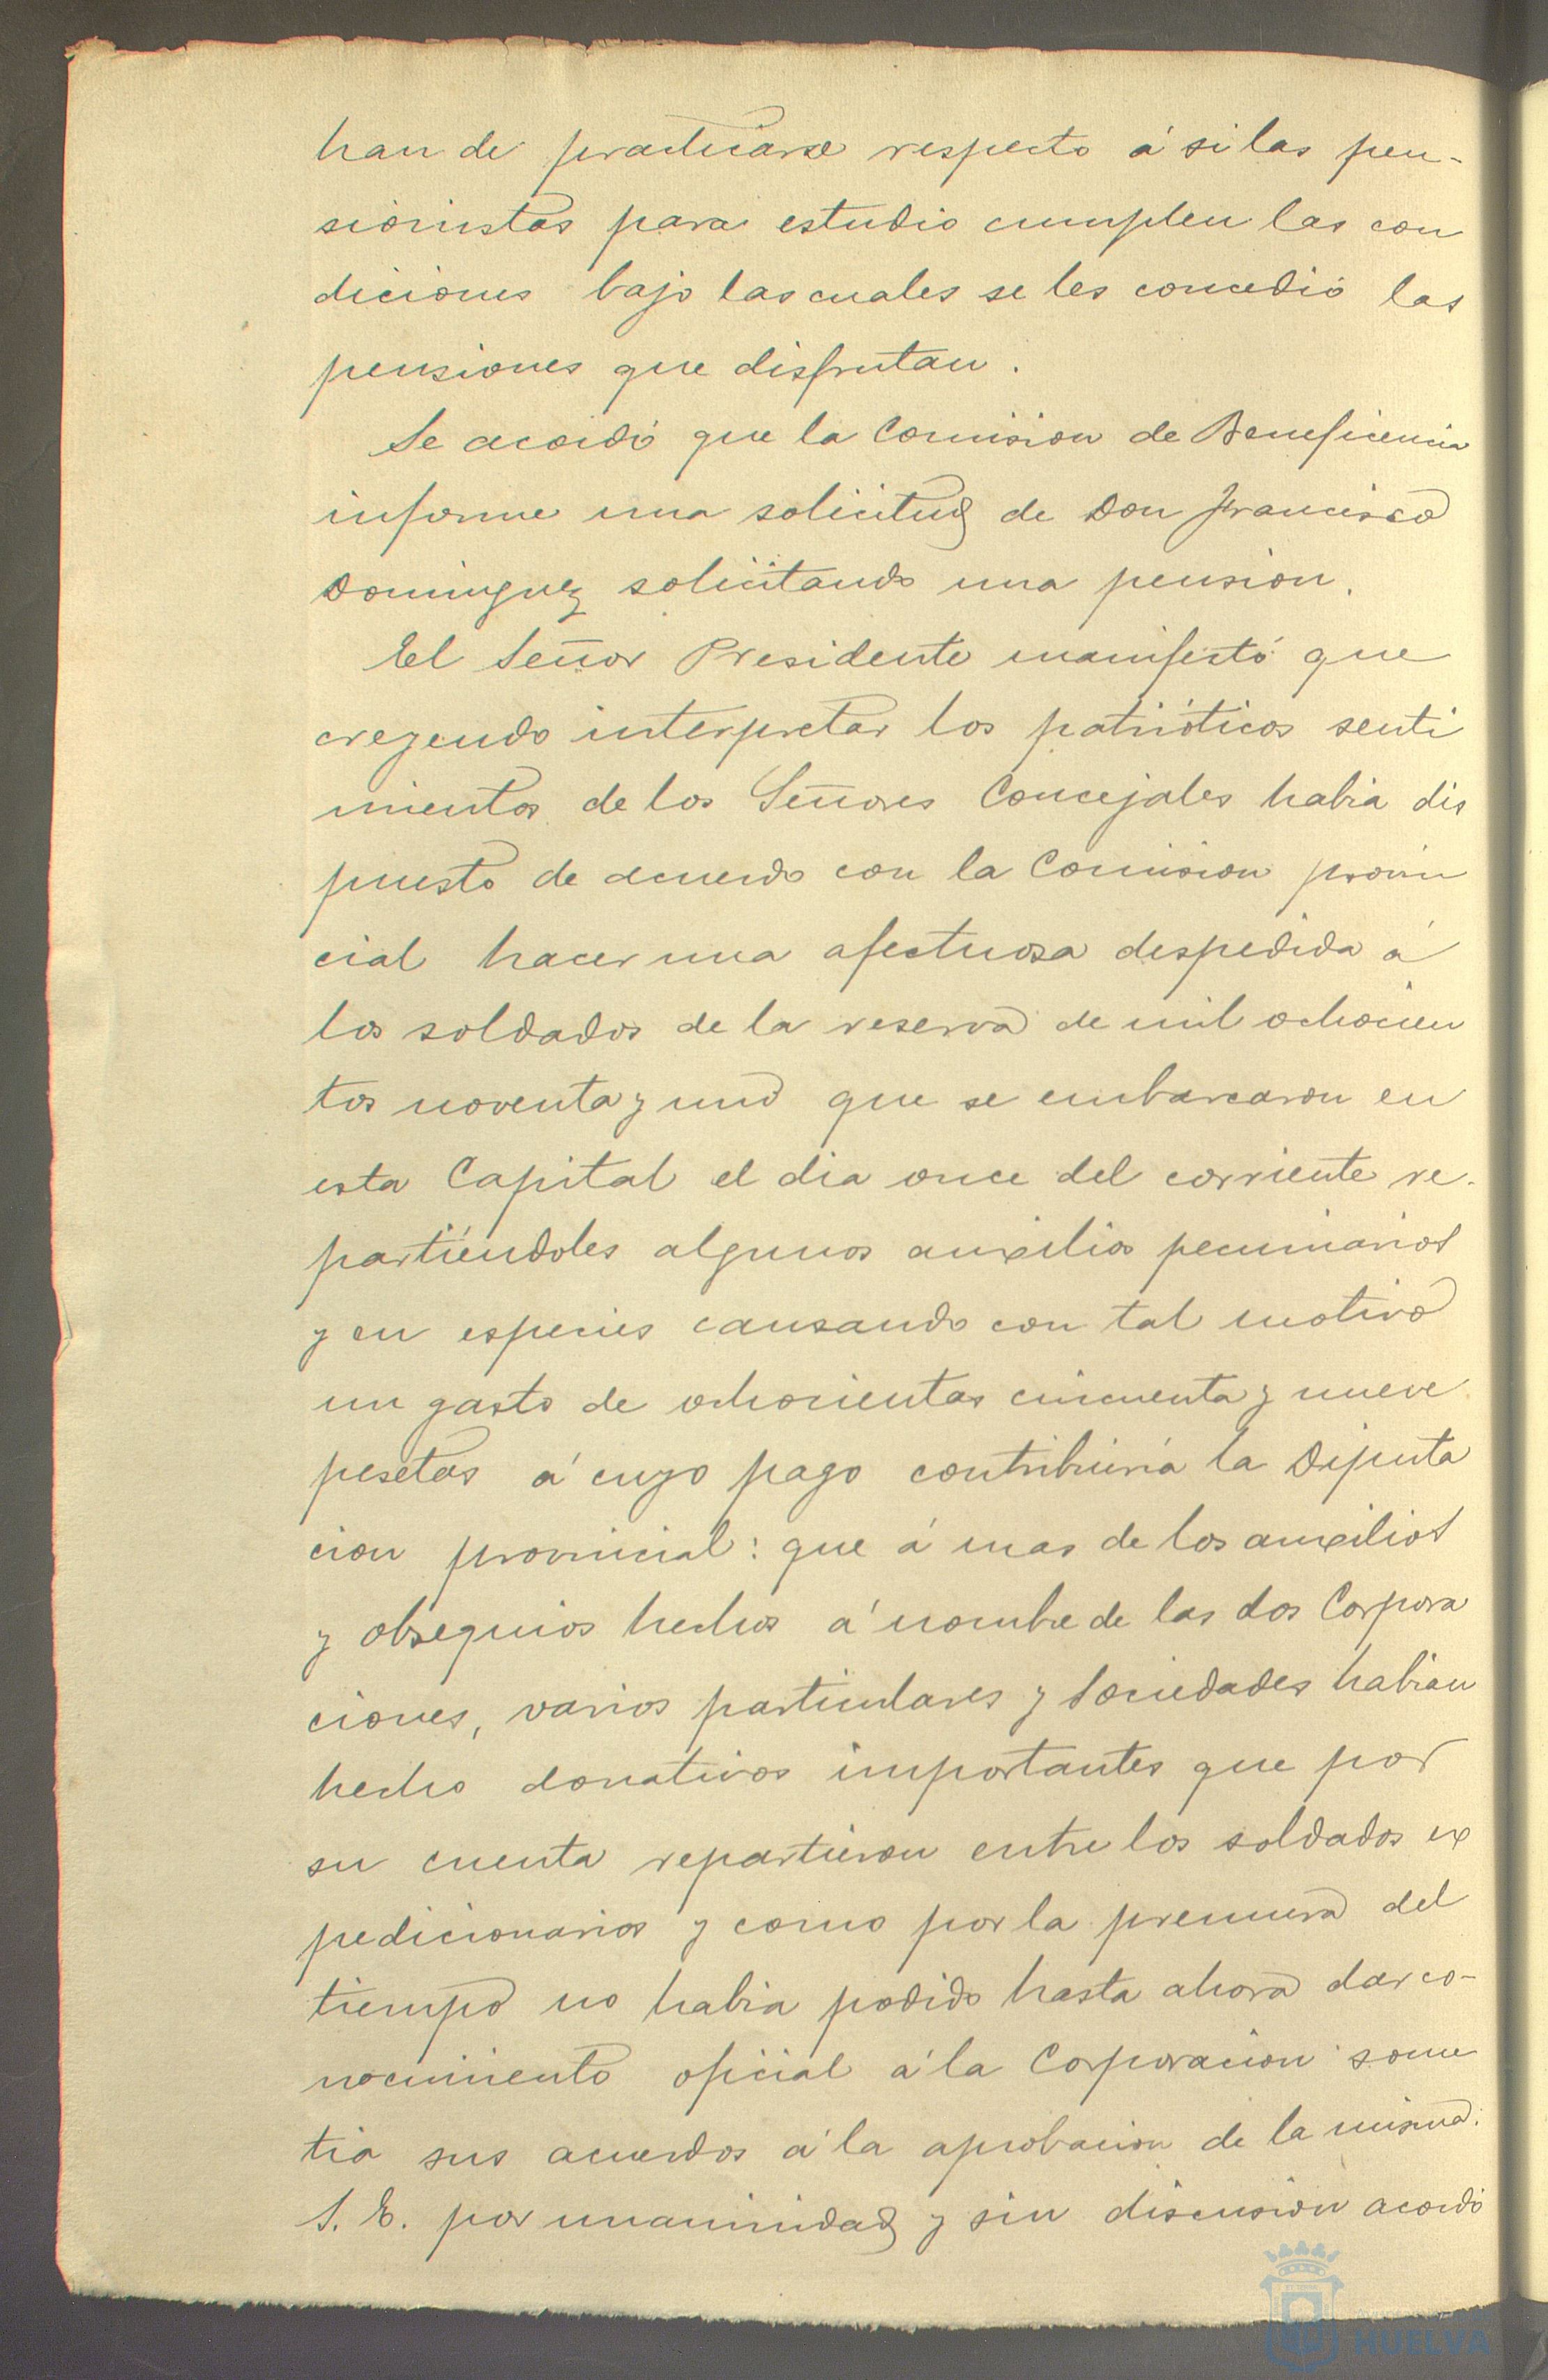 han de practicarse respecto á si las pen-
sionistas para estudio cumplen las con
diciones bajo las cuales se les concedió las
pensiones que disfrutan.
Se acordó que la Comision de Beneficencia
informe una solicitud de Don Francisco
Dominguez solicitando una pension.
El Señor Presidente manifestó que
creyendo interpretar los patrióticos senti
mientos de los Señores Concejales habia dis
puesto de acuerdo con la Comision provin
cial hacer una afectuosa despedida á
los soldados de la reserva de mil ochocien
tos noventa y uno que se embarcaron en
esta Capital el dia once del corriente re-
partiéndoles algunos auxilios pecuniarios
y en especies causando con tal motivo
un gasto de ochocientas cincuenta y nueve
pesetas á cuyo pago contribuiria la Diputa
cion provincial: que á mas de los auxilios
y obsequios hechos á nombre de las dos Corpora
ciones, varios particulares y Sociedades habian
hecho donativos importantes que por
su cuenta repartieron entre los soldados ex
pedicionarios y como por la premura del
tiempo no habia podido hasta ahora dar co-
nocimiento oficial á la Corporacion some
tia sus acuerdos á la aprobacion de la misma.
S. E. por unanimidad y sin discusion acordó
HUELVA